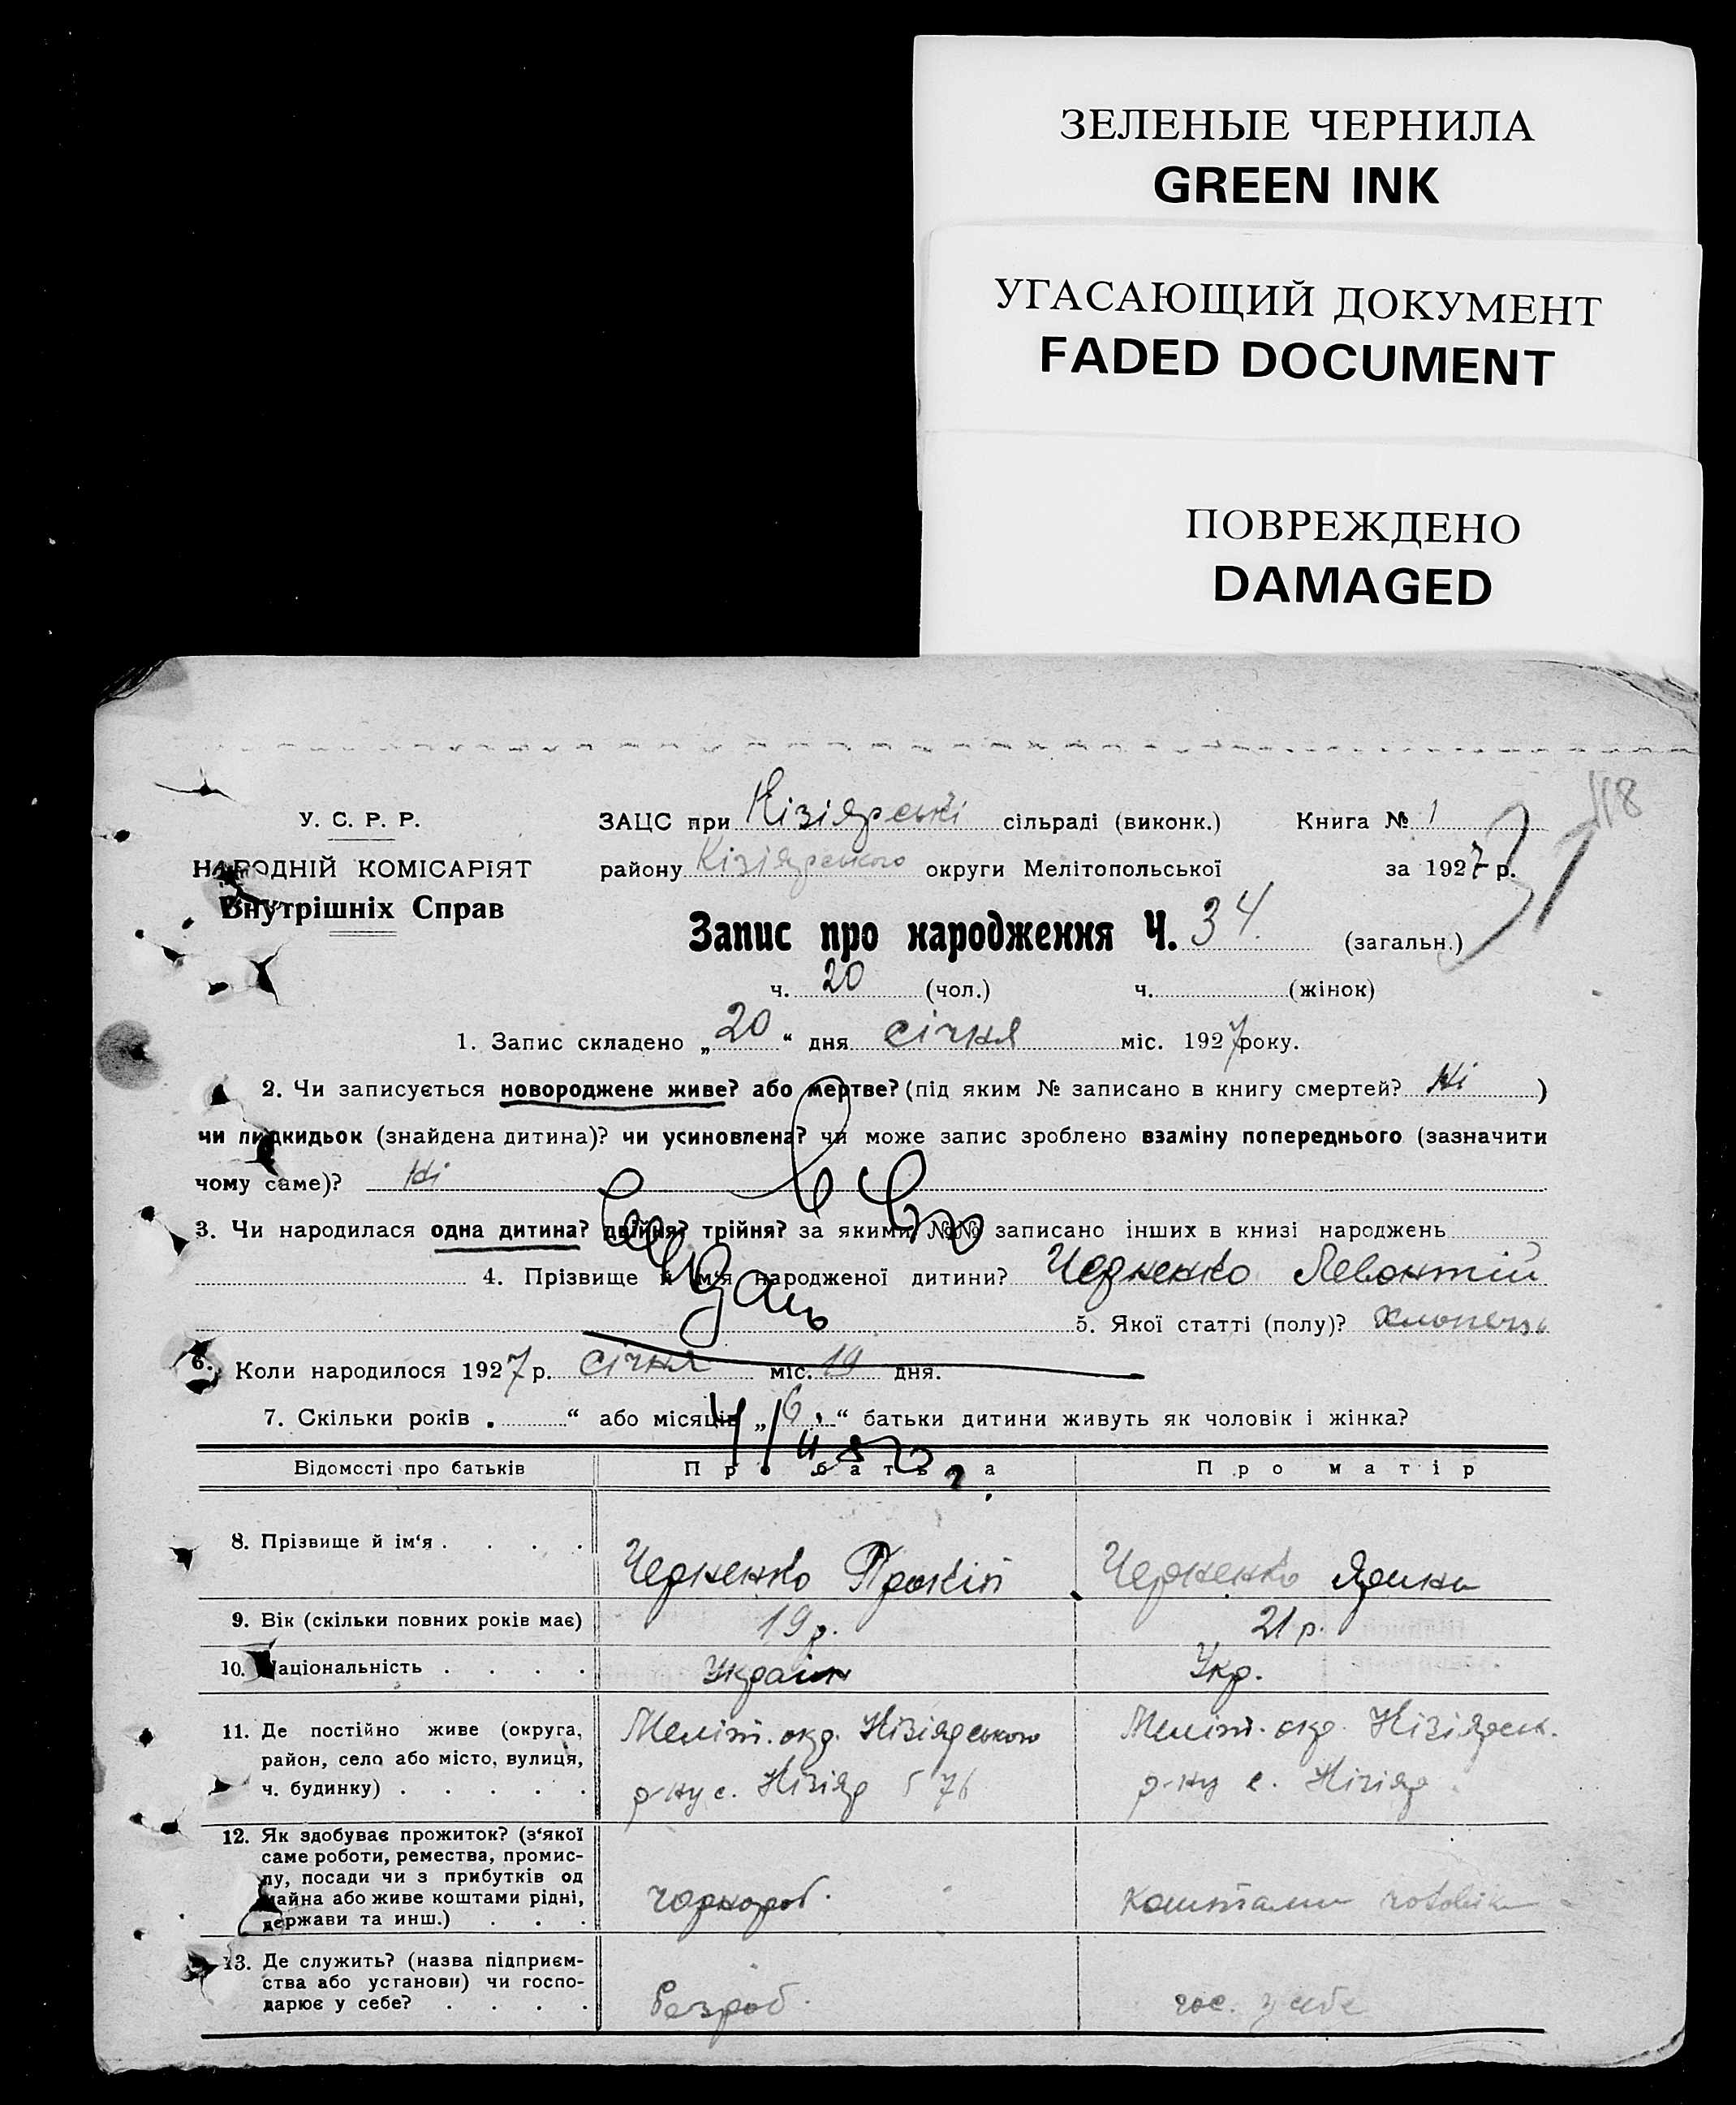 ЗЕЛЕНЫЕ ЧЕРНИЛА
GREEN INK
УГАСАЮЩИЙ ДОКУМЕНТ
FADED DOCUMENT
ПОВРЕЖДЕНО
DAMAGED
118
У. С. Р. Р.
НАРОДНІЙ КОМІСАРІЯТ
Внутрішніх Справ
ЗАЦС при Кізіярські сільраді (виконк.) Книга № 1
району Кізіярського округи Мелітопольської за 1927 р.
31
Запис про народження Ч. 34. (загальн.)
ч. 20 (чол.) ч. (жінок)
1. Запис складено „20“ дня січня міс. 1927 року.
2. Чи записується новороджене живе? або мертве? (під яким № записано в книгу смертей? Ні )
чи підкидьок (знайдена дитина)? чи усиновлена? чи може запис зроблено взаміну попереднього (зазначити
чому саме)? Ні
3. Чи народилася одна дитина? двійня? трійня? за якими №№ записано інших в книзі народжень
4. Прізвище й ім‘я народженої дитини? Черненко Левонтій
5. Якої статті (полу)? хлопець
6. Коли народилося 1927 р. січня міс. 19 дня.
7. Скільки років „ “ або місяців „6“ батьки дитини живуть як чоловік і жінка?
Відомості про батьків Про батька Про матір
8. Прізвище й ім‘я . . . . Черненко Прокіп Черненко Ярина
9. Вік (скільки повних років має) 19 р. 21 р.
10. Національність . . . . Україн Укр.
11. Де постійно живе (округа,
район, село або місто, вулиця,
ч. будинку) . . . . .
Меліт. окр. Кізіярського
р-ну с. Кізіяр 576
Меліт. окр. Кізіярськ.
р-ну с. Кізіяр
12. Як здобуває прожиток? (з‘якої
саме роботи, ремества, промис-
лу, посади чи з прибутків од
майна або живе коштами рідні,
держави та инш.) . . .
чорнороб.
коштами чоловіка
13. Де служить? (назва підприєм-
ства або установи) чи госпо-
дарює у себе? . . . .
Безроб.
гос. у себе